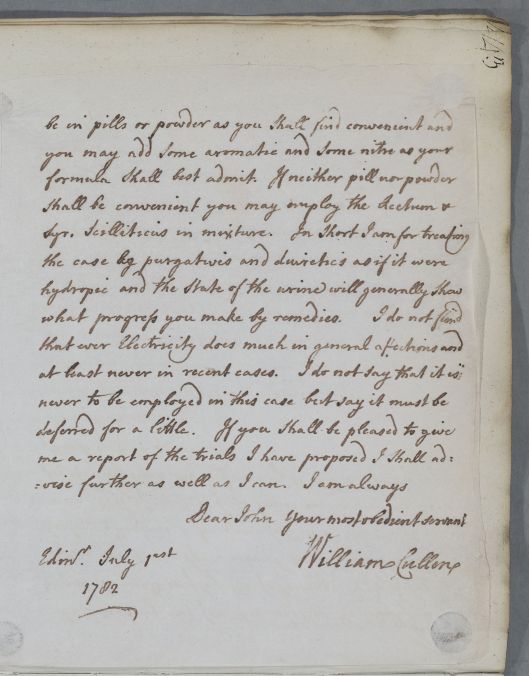 443
be in pills or powder as you shall find convenient and
you may add some aromatic and some nitre as your
formula shall best admit. If neither pill nor powder
shall be convenient you may employ the Acetum &
Syr. Scilliticus in mixture. In short I am for treating
the case by purgatives and diuretics as if it were
hydropic and the state of the urine will generally show
what progress you make by remedies. I do not find
that ever Electricity does much in general affections and
at least never in recent cases. I do not say that it is
never to be employed in this case but say it must be
deferred for a little. If you shall be pleased to give
me a report of the trials I have proposed I shall ad=
=vise further as well as I can. I am always
Dear John your most obedient servant
William Cullen
Edinr. July 1st
1782